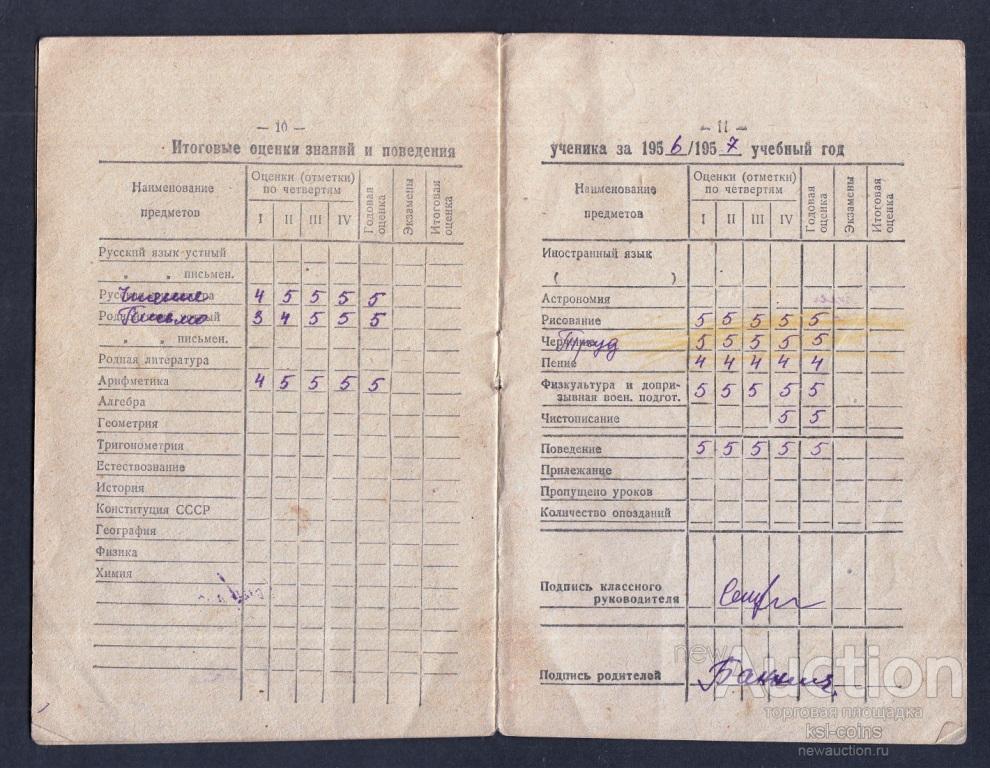 — 10 —
Итоговые оценки знаний и поведения
Наименование предметов
Оценки (отметки) по четвертям
I II III IV
Годовая оценка
Экзамены
Итоговая оценка
Русский язык устный
„ „ письмен.
Чтение 4 5 5 5 5
Письмо 3 4 5 5 5
„ „ письмен.
Родная литература
Арифметика 4 5 5 5 5
Алгебра
Геометрия
Тригонометрия
Естествознание
История
Конституция СССР
География
Физика
Химия
— 11 —
ученика за 1956/1957 учебный год
Наименование предметов
Оценки (отметки) по четвертям
I II III IV
Годовая оценка
Экзамены
Итоговая оценка
Иностранный язык
( )
Астрономия
Рисование 5 5 5 5 5
Труд 5 5 5 5 5
Пение 4 4 4 4 4
Физкультура и допри-
зывная воен. подгот. 5 5 5 5 5
Чистописание 5 5
Поведение 5 5 5 5 5
Прилежание
Пропущено уроков
Количество опозданий
Подпись классного
руководителя
Подпись родителей
newAuction
торговая площадка
ksl-coins
newauction.ru